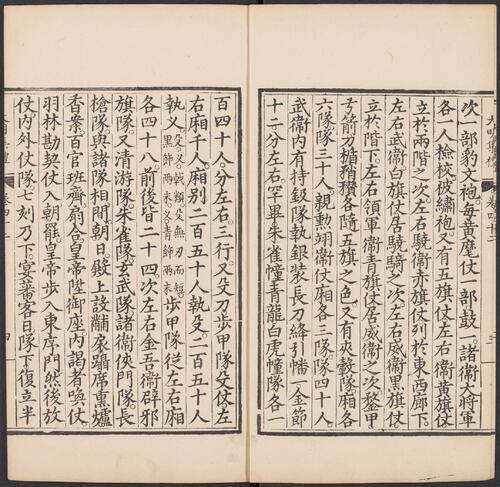 次一部豹文袍每黄麾仗一部鼓一諸衛大將軍
各一人檢校被繡袍又有五旗仗左右衛黄旗仗
立於兩階之次左右驍衛赤旗仗列於東西廊下
左右武衛白旗仗居驍騎之次左右威衛黑旗仗
立於階下左右領軍衛青旗仗居威衛之次鍪甲
弓箭刀楯矟穳各隨五旗之色又有夾轂隊廂各
六隊隊三十人親勲翊衛仗廂各三隊隊四十人
武衛内有持鈒隊執銀裝長刀絳引幡一金節
十二分左右罕畢朱雀幢青龍白虎幢隊各一
百四十八人分左右三行又殳刀步甲隊文仗左
右廂千人廂别二百五十人執殳二百五十人
執义殳义戟類殳無刃而短黒飾兩末义青飾兩末步甲隊從左右廂
各四十八前後皆二十四次左右金吾衛辟邪
旗隊又清游隊朱雀隊玄武隊諸衛俠門隊長
槍隊與諸隊相間朝日殿上設黼扆躡席熏爐
香案百官班齊扇合皇帝陞御座内謁者喚仗
羽林勘契仗入朝罷皇帝步入東序門然後放
仗内外仗隊七刻乃下宴蕃客日隊下復立半
卷四十二
四